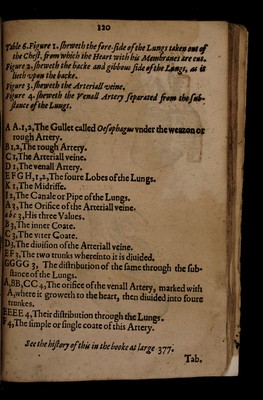 120
Table 6. Figure 1. sheweth the fore-side of the Lungs taken out of
the Chest, from which the Heart with his Membranes are cut.
Figure 2. sheweth the backe and gibbous side of the Lungs, as it
lieth vpon the backe.
Figure 3. sheweth the Arteriall veine.
Figure 4. sheweth the Venall Artery separated from the sub-
stance of the Lungs.
A A. 1,2, The Gullet called Oesophagus vnder the weazon or
rough Artery.
B 1,2, The rough Artery.
C 1, The Arteriall veine.
D 1, The venall Artery.
E F G H, 1,2, The foure Lobes of the Lungs.
K 1, The Midriffe.
I 2, The Canale or Pipe of the Lungs.
A 3, The Orifice of the Arteriall veine.
a b c 3, His three Values.
B 3, The inner Coate.
C 3, The vtter Coate.
D 3, The diuision of the Arteriall veine.
E F 3, The two trunks whereinto it is diuided.
GGGG 3, The distribution of the same through the sub-
stance of the Lungs.
A, BB, CC 4, The orifice of the venall Artery, marked with
A, where it groweth to the heart, then diuided into foure
trunkes.
EEEE 4, Their distribution through the Lungs.
F 4, The simple or single coate of this Artery.
See the history of this in the booke at large 377.
Tab.